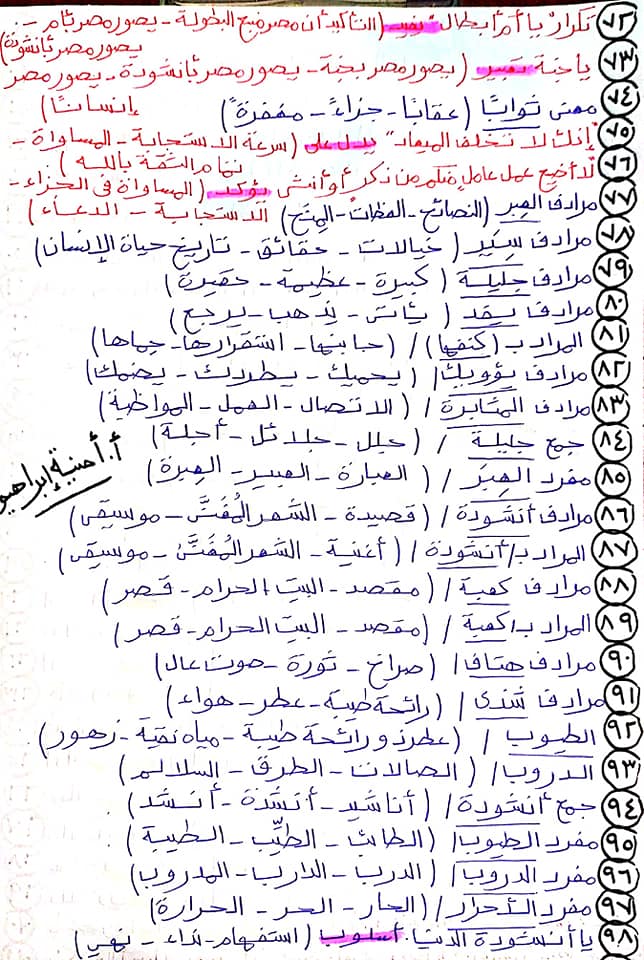 ٧٢ تكرار "يا أم أبطال" يفيد (التأكيد أن مصر منبع البطولة - يصور مصر بأم -
يصور مصر بأنشودة)
٧٣ يا جنة تعبير (يصور مصر بجنة - يصور مصر بأنشودة - يصور مصر
إنسانًا)
٧٤ معنى ثوابًا (عقابًا - جزاءً - مغفرةً)
٧٥ "إنك لا تخلف الميعاد" يدل على (سرعة الاستجابة - المساواة -
تمام الثقة بالله)
٧٦ لا أضيع عمل عامل منكم من ذكر أو أنثى يؤكد (المساواة في الجزاء -
الاستجابة - الدعاء)
٧٧ مرادف العبر (النصائح - العظات - المنح)
٧٨ مرادف سير (خيالات - حقائق - تاريخ حياة الإنسان)
٧٩ مرادف جليلة (كبيرة - عظيمة - حقيرة)
٨٠ مرادف يفد (يأتى - يذهب - يرجع)
٨١ المراد بـ (كنفها) / (جانبها - استقرارها - حماها)
٨٢ مرادف يؤويك / (يحميك - يطردك - يضمك)
٨٣ مرادف المثابرة / (الاتصال - العمل - المواظبة)
٨٤ جمع جليلة / (جلل - جلائل - أجلة)
أ. أمنية إبراهيم
٨٥ مفرد العبر / (العبارة - العبير - العبرة)
٨٦ مرادف أنشودة / (قصيدة - الشعر المُغنَّى - موسيقى)
٨٧ المراد بـ/ أنشودة / (أغنية - الشعر المُغنَّى - موسيقى)
٨٨ مرادف كعبة / (مقصد - البيت الحرام - قصر)
٨٩ المراد بـ/ كعبة / (مقصد - البيت الحرام - قصر)
٩٠ مرادف هتاف / (صراخ - ثورة - صوت عال)
٩١ مرادف شذى / (رائحة طيبة - عطر - هواء)
٩٢ الطيوب / (عطر ذو رائحة طيبة - مياه نقية - زهور)
٩٣ الدروب / (الصالات - الطرق - السلالم)
٩٤ جمع أنشودة / (أناشيد - أنشدة - أنشد)
٩٥ مفرد الطيوب / (الطائب - الطيِّب - الطيبة)
٩٦ مفرد الدروب / (الدرب - الدارب - المدروب)
٩٧ مفرد الأحرار / (الحار - الحر - الحرارة)
٩٨ يا أنشودة الدنيا. أسلوب (استفهام - نداء - نهي)